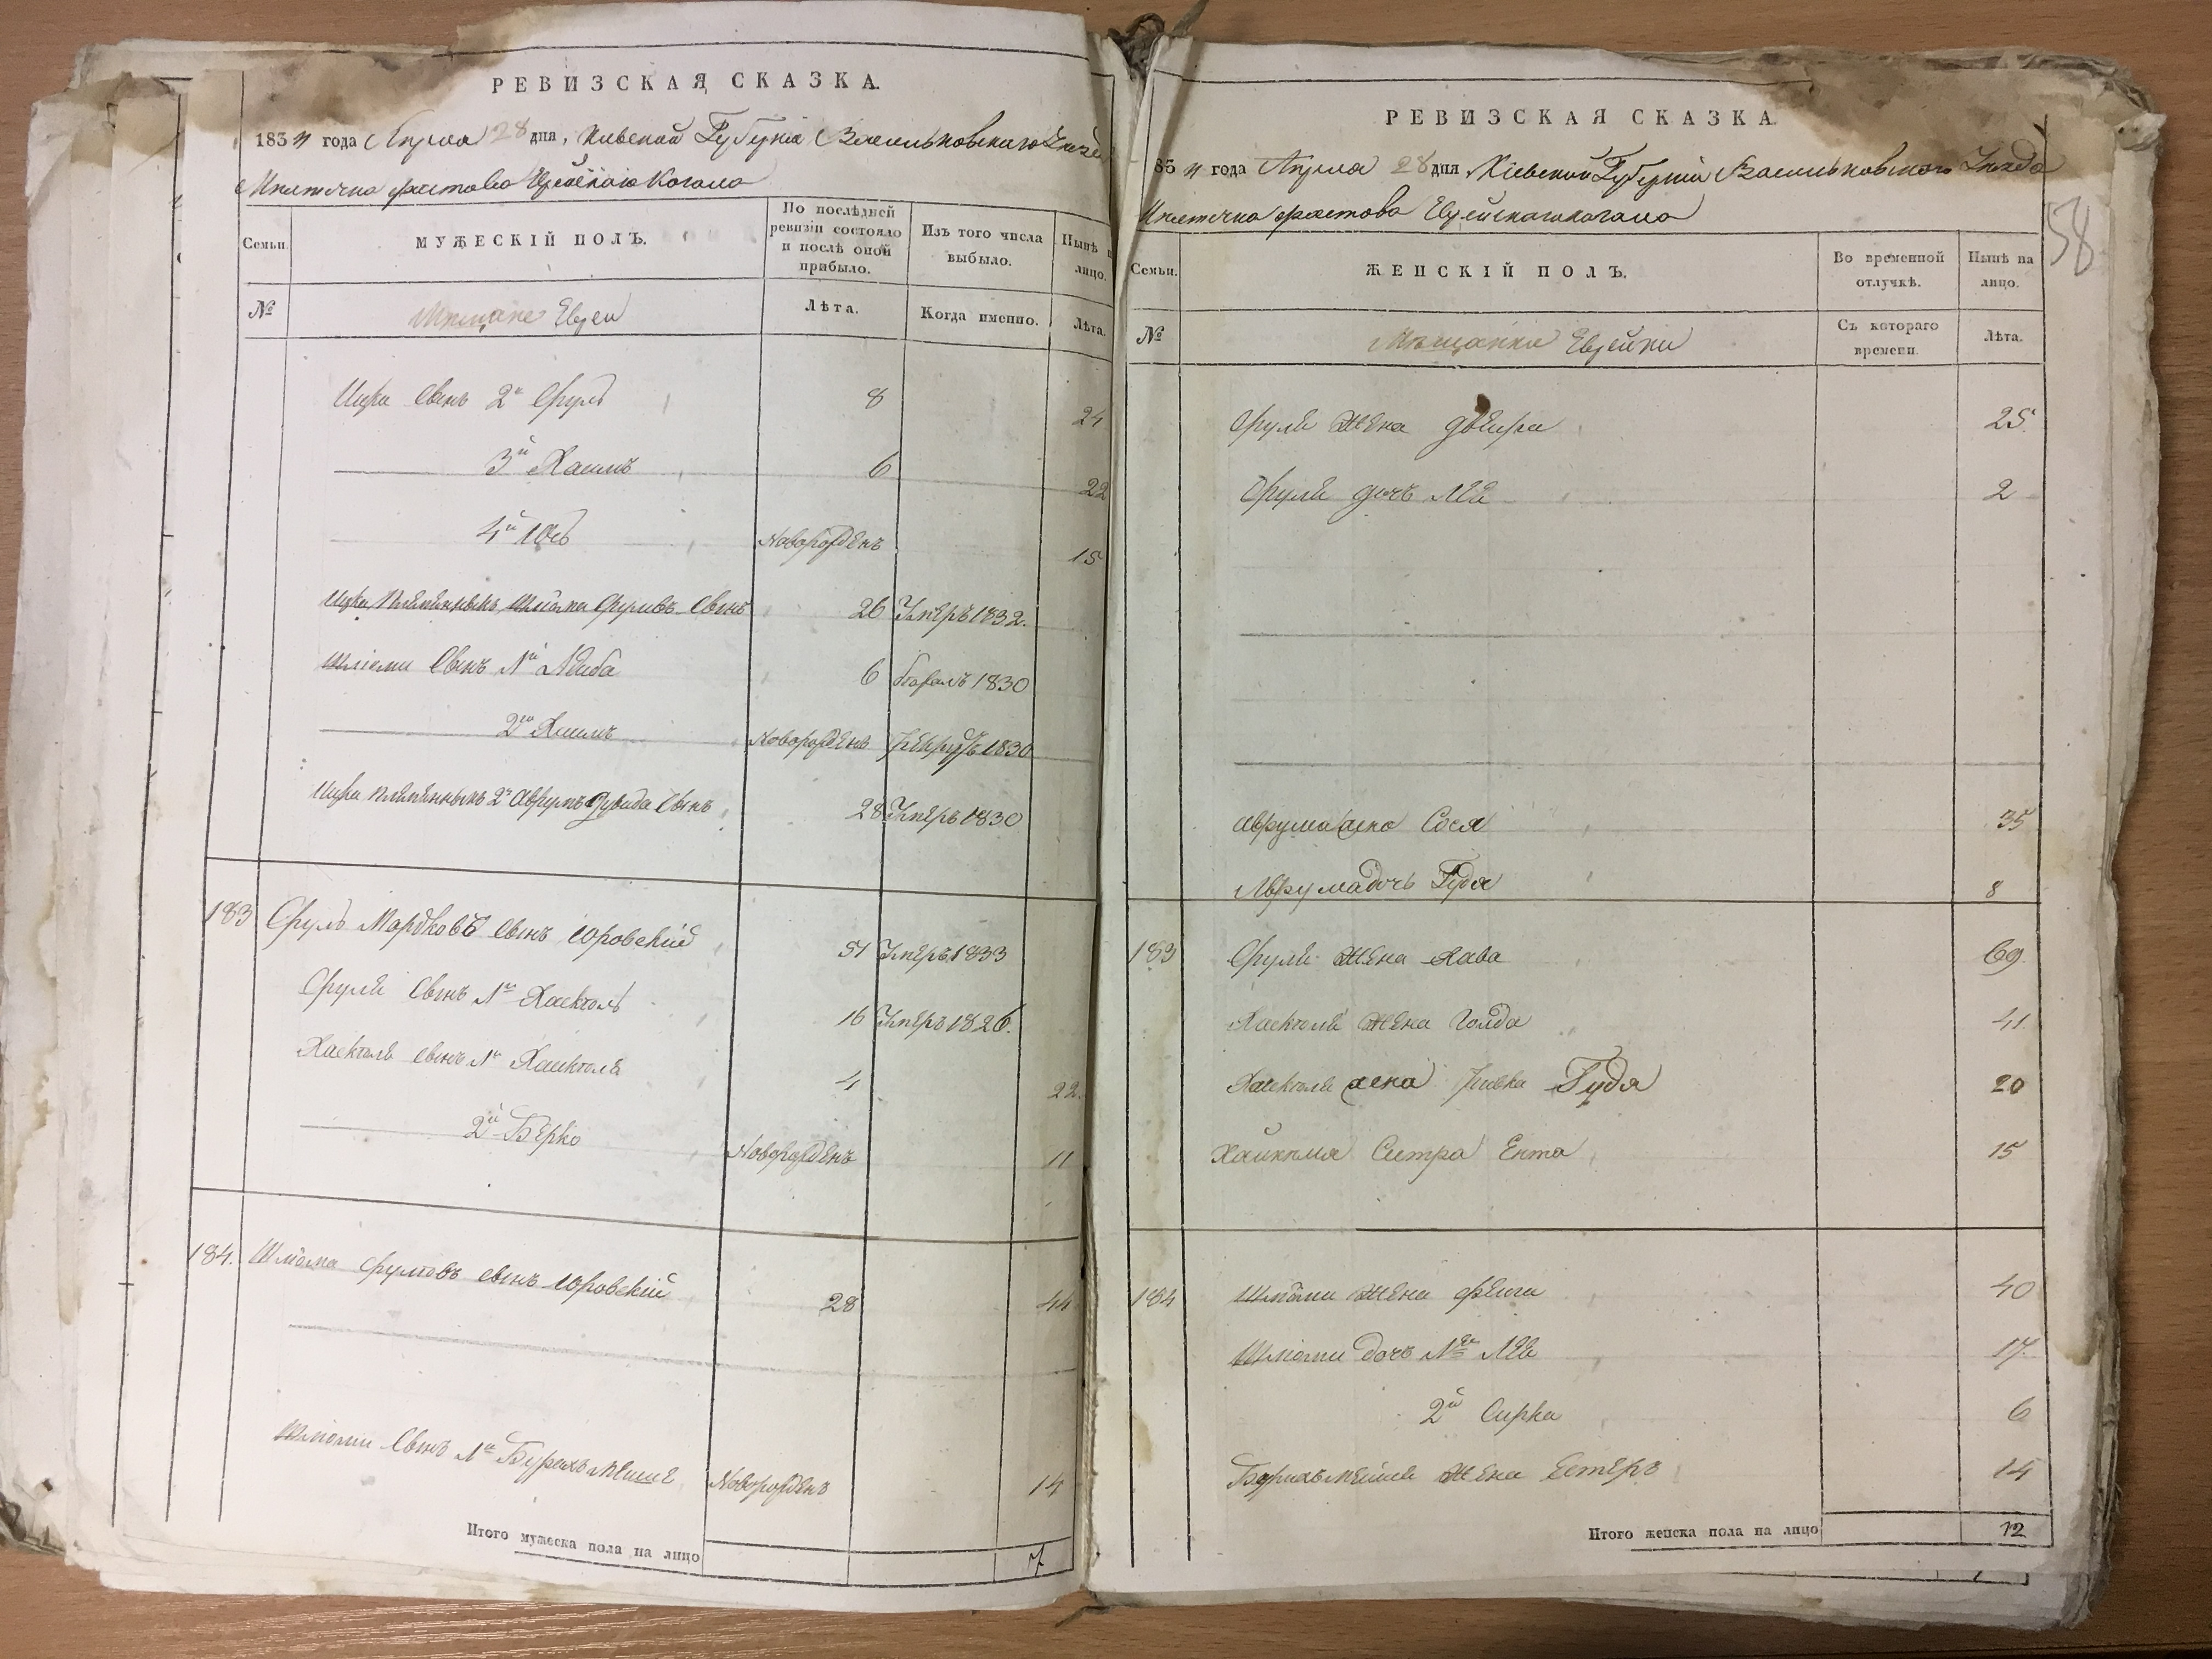 РЕВИЗСКАЯ СКАЗКА.
1834 года Апреля 28 дня, Киевской Губернiи Васильковскаго Уезда
Местечка Фастова Еврейскаго Кагала
Семьи.
МУЖЕСКІЙ ПОЛЪ.
По послѣдней ревизіи состояло и послѣ оной прибыло.
Изъ того числа выбыло.
Нынѣ на лицо.
№
Мещане Евреи
Лѣта.
Когда именно.
Лѣта.
Сынъ 2й Сруль 8 24
3й Хаимъ 6 22
4й Іось Новорожденъ 15
Шліома Срулевъ Сынъ 26 Умеръ 1832.
Шліоми Сынъ 1й Лейба 6 1830
2й Хаимъ Новорожденъ 1830
2й Аврумъ Сынъ 28 Умеръ 1830
183 Сруль Мордковъ Сынъ Юровскій 51 Умеръ 1833
Сруля Сынъ 1й Хаскель 16 Умеръ 1826.
Хаскеля сынъ 1й 4 22.
2й Берко Новорожденъ 11
184. Шліома Срулевъ сынъ Юровскій 28 44
Шліоми Сынъ 1й Новорожденъ 14
Итого мужеска пола на лицо 7
РЕВИЗСКАЯ СКАЗКА.
834 года Апреля 28 дня Кіевской Губерніи Васильковскаго Уезда
Местечка Фастова Еврейскаго кагала
58
Семьи.
ЖЕНСКІЙ ПОЛЪ.
Во временной отлучкѣ.
Нынѣ на лицо.
№
Мещанки Еврейки
Съ котораго времени.
Лѣта.
Сруля Жена Двейра 25
Сруля дочь Лея 2
Аврума жена Сося 35
Аврума дочь Гудя 8
183 Сруля Жена Хава 69
Хаскеля Жена Голда 41
Хаскеля жена Ривка Гудя 20
Сестра Ента 15
184 Шліоми Жена Фейга 40
Шліоми дочь 1я Лея 17
2я Сирка 6
Жена Естеръ 14
Итого женска пола на лицо 12